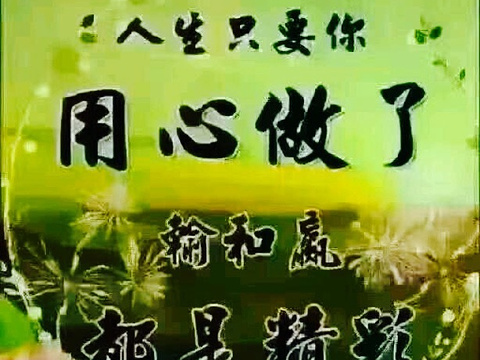 人生只要你
用心做了
输和赢
都是精彩